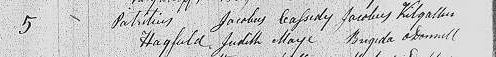 5 Patritius Jacobus Cassedy Jacobus Kilgallen
Hagfield Judith Maye Brigida O Donnell